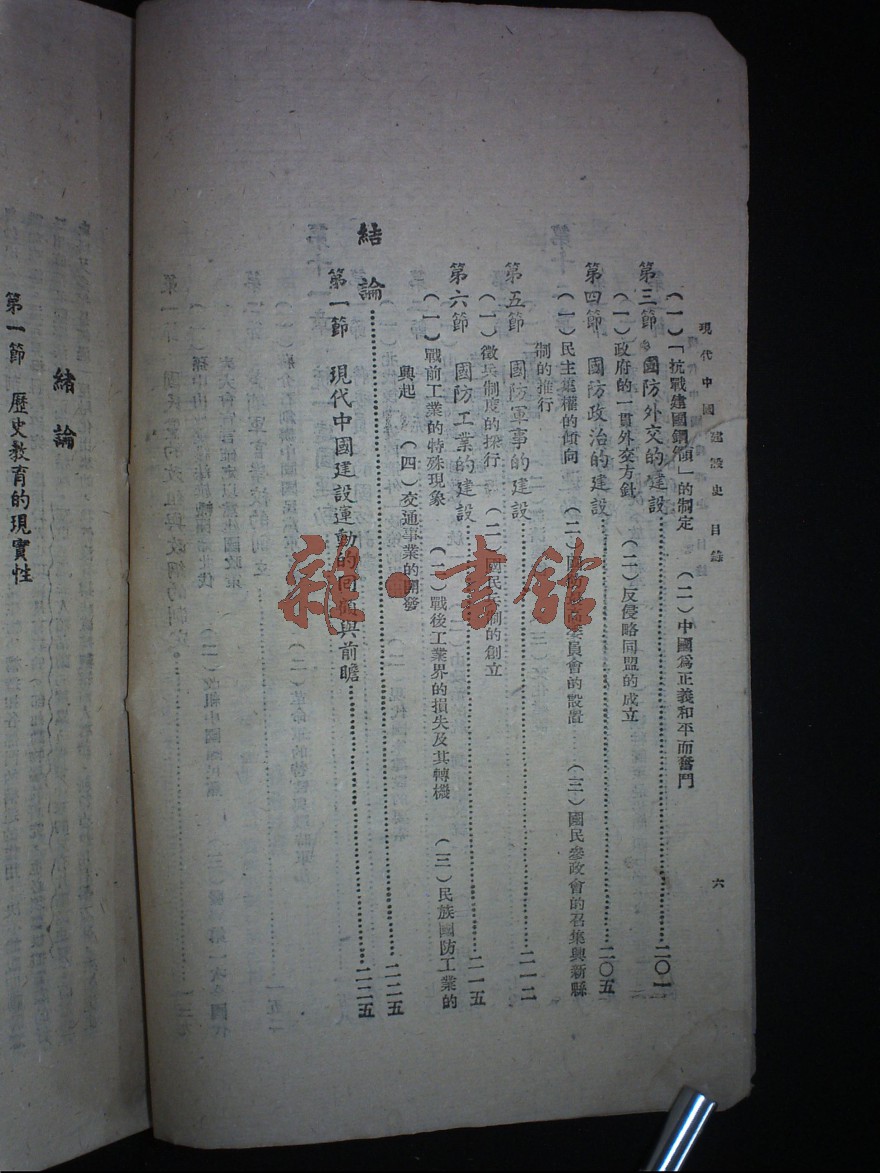 現代中國建設史 目錄
六
(一)「抗戰建國綱領」的制定 (二)中國爲正義和平而奮鬥
第三節 國防外交的建設……二〇一
(一)政府的一貫外交方針 (二)反侵略同盟的成立
第四節 國防政治的建設……二〇五
(一)民主集權的傾向 (二)國防最高委員會的設置 (三)國民參政會的召集與新縣
制的推行
第五節 國防軍事的建設……二一二
(一)徵兵制度的採行 (二)國民兵制的創立
第六節 國防工業的建設……二一五
(一)戰前工業的特殊現象 (二)戰後工業界的損失及其轉機 (三)民族國防工業的
興起 (四)交通事業的開發
結論……二二五
第一節 現代中國建設運動的回顧與前瞻……二二五
緒論
第一節 歷史教育的現實性
雜·書館